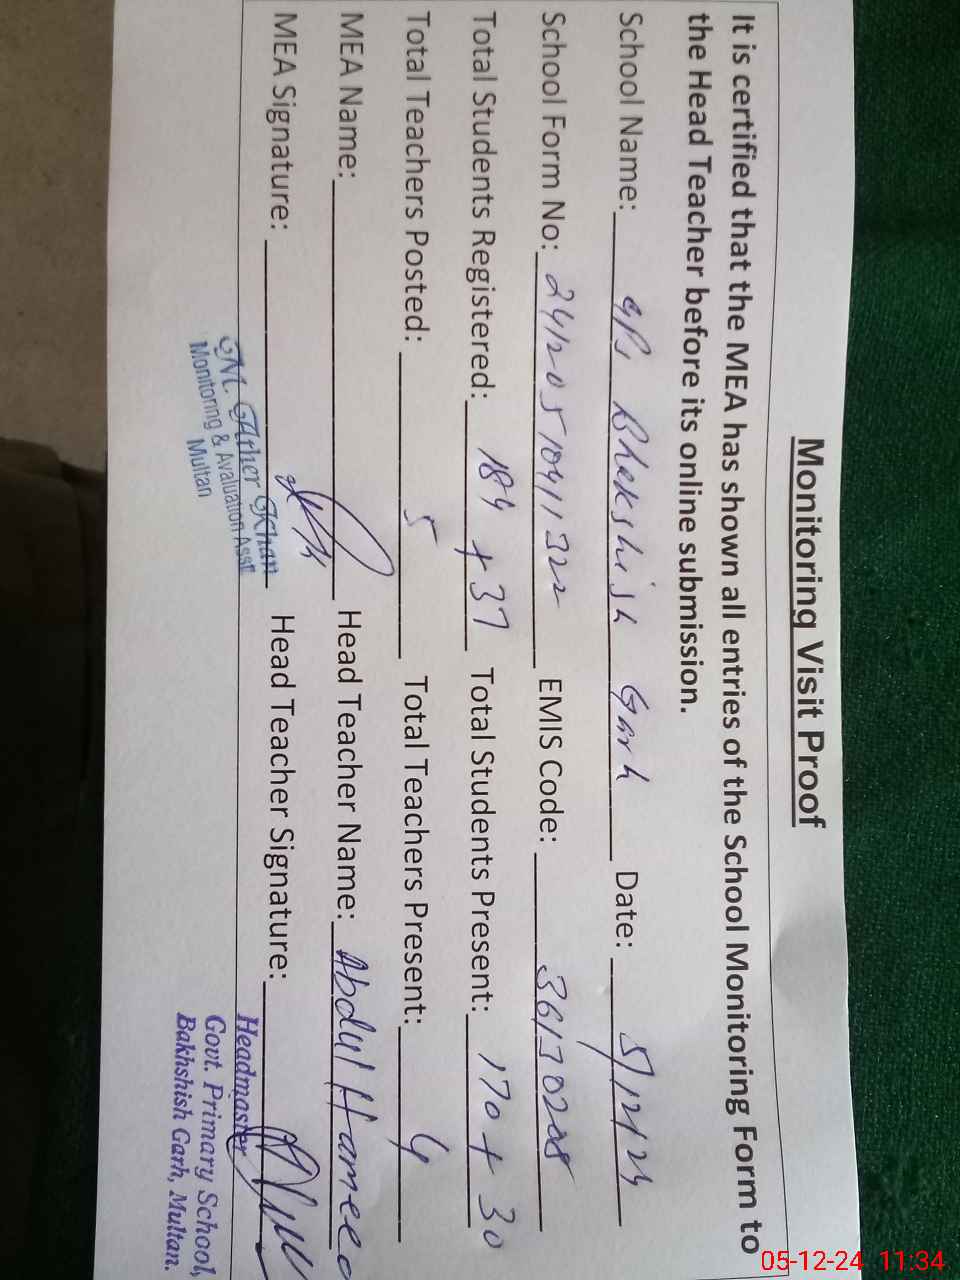 Monitoring Visit Proof
It is certified that the MEA has shown all entries of the School Monitoring Form to
the Head Teacher before its online submission.
School Name: GPS Bhekshish Garh Date: 5/12/24
School Form No: 2412051041322 EMIS Code: 36130288
Total Students Registered: 184 + 37 Total Students Present: 170 + 30
Total Teachers Posted: 5 Total Teachers Present: 4
MEA Name: Head Teacher Name: Abdul Hameed
MEA Signature: Head Teacher Signature:
M. Ather Khan
Monitoring & Avaluation Asst
Multan
Headmaster
Govt. Primary School,
Bakhshish Garh, Multan.
05-12-24 11:34